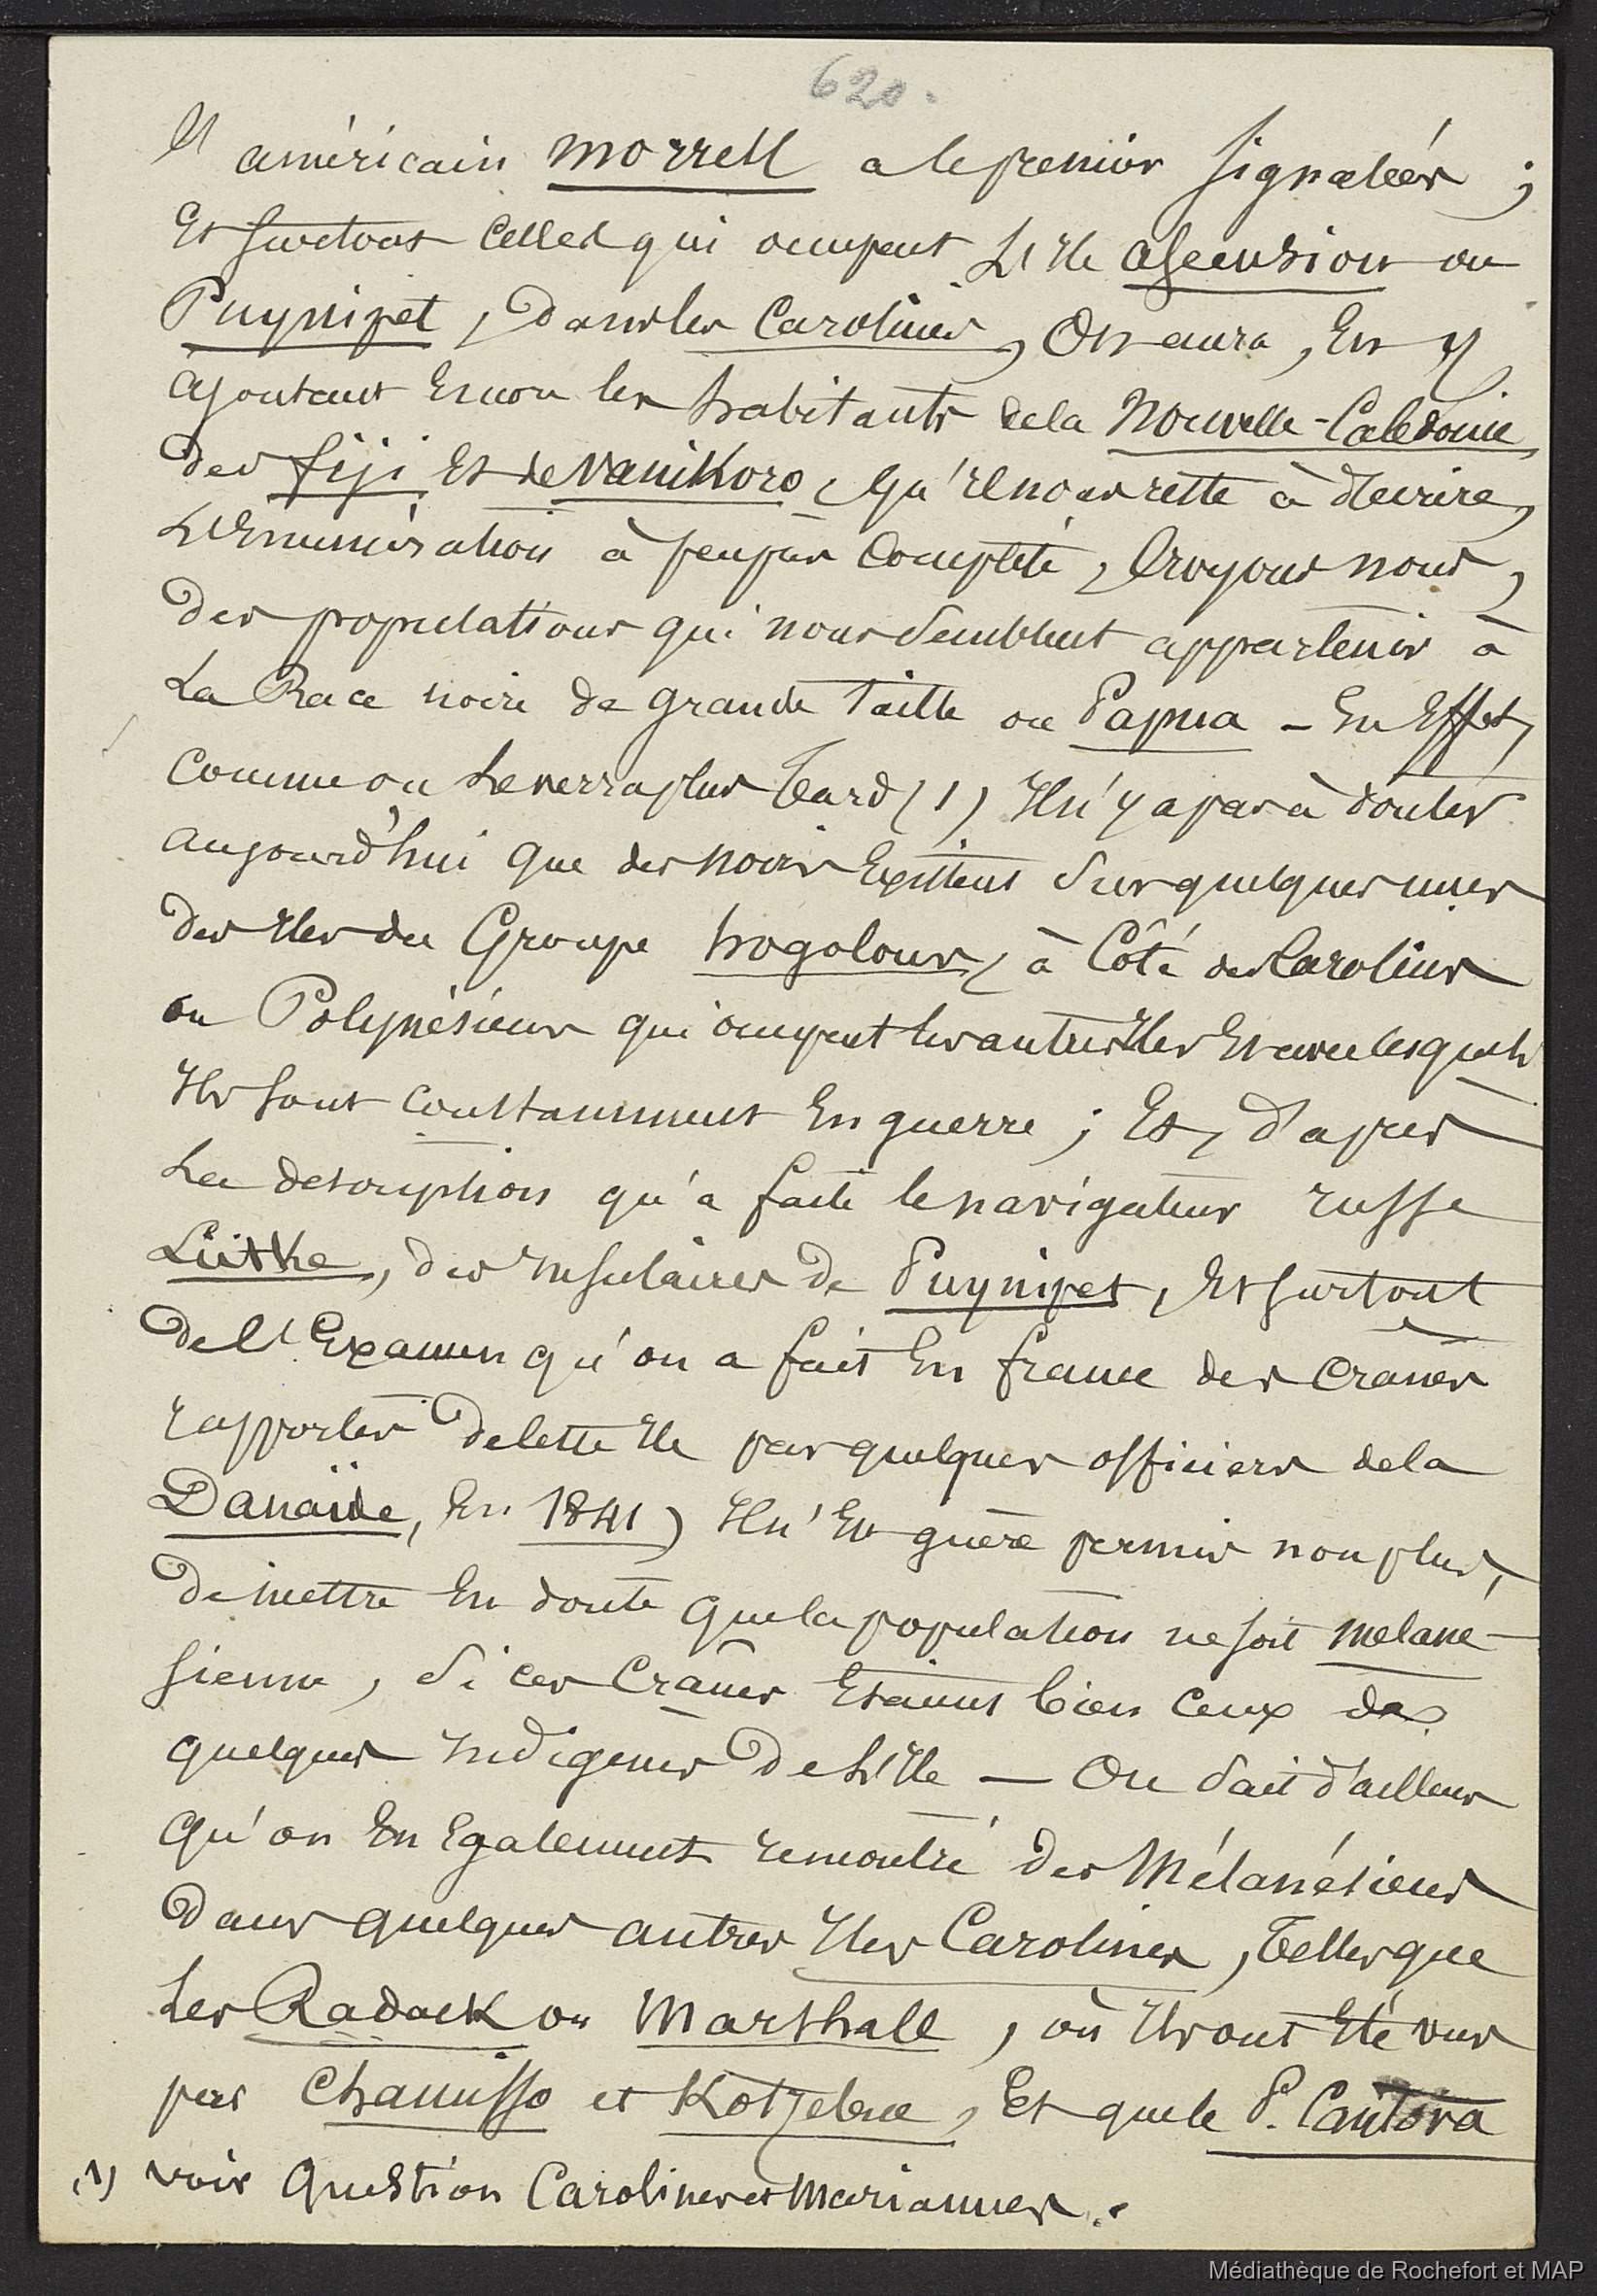 620.
l'américain Morrell a le premier signalées ;
et surtout celles qui occupent l'île Ascension ou
Puynipet, dans les Carolines, on aura, en y
ajoutant encore les habitants de la Nouvelle-Calédonie
des fiji et de Vanikoro, qu'il nous reste à décrire,
l'énumération à peu près complète, croyons nous,
des populations qui nous semblent appartenir à
la Race noire de grande taille ou Papua - En effet,
comme on le verra plus tard (1) il n'y a pas à douter
aujourd'hui que des noirs existent sur quelques unes
des îles du Groupe hogolous, à côté des Carolins
ou Polynésiens qui occupent les autres îles et avec lesquels
ils sont constamment en guerre ; et, d'après
la description qu'a faite le navigateur russe
Lütke, des insulaires de Puynipet, et surtout
de l'examen qu'on a fait en france des crânes
rapportés de cette île par quelques officiers de la
Danaïde, en 1841, il n'est guère permis non plus,
de mettre en doute que la population ne soit mélané-
sienne, si ces crânes étaient bien ceux des
quelques indigènes de l'île — On sait d'ailleurs
qu'on en également rencontré des Mélanésiens
dans quelques autres îles Carolines, telles que
les Radack ou Marshall, où ils ont été vus
par Chamisso et Kotzebue, et que le P. Cantova
(1) voir Question Carolines et Mariannes.
Médiathèque de Rochefort et MAP